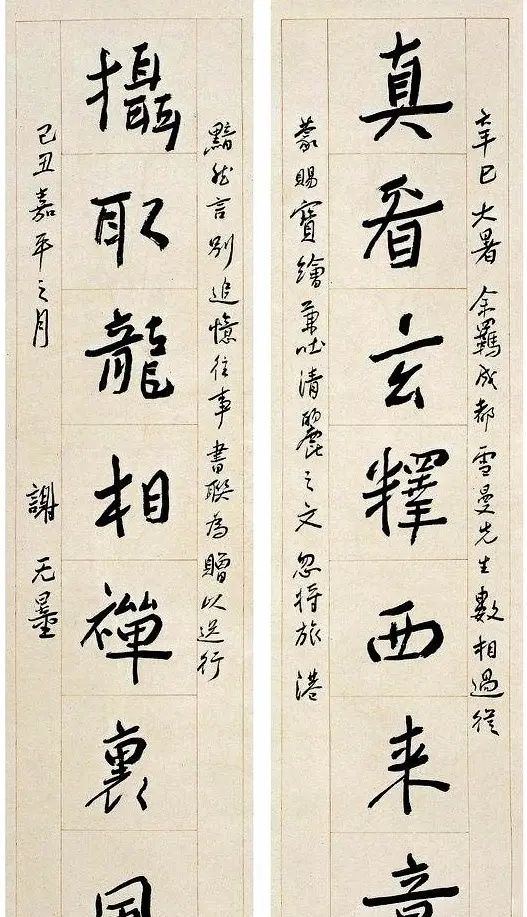 辛巳大暑余羈成都雪曼先生數相過從
真看玄釋西来
蒙賜寶繪兼吐清麗之文忽將旅港
黯然言別追憶往事書聯為贈以送行
攝取龍相禪裏
己丑嘉平之月 謝无量